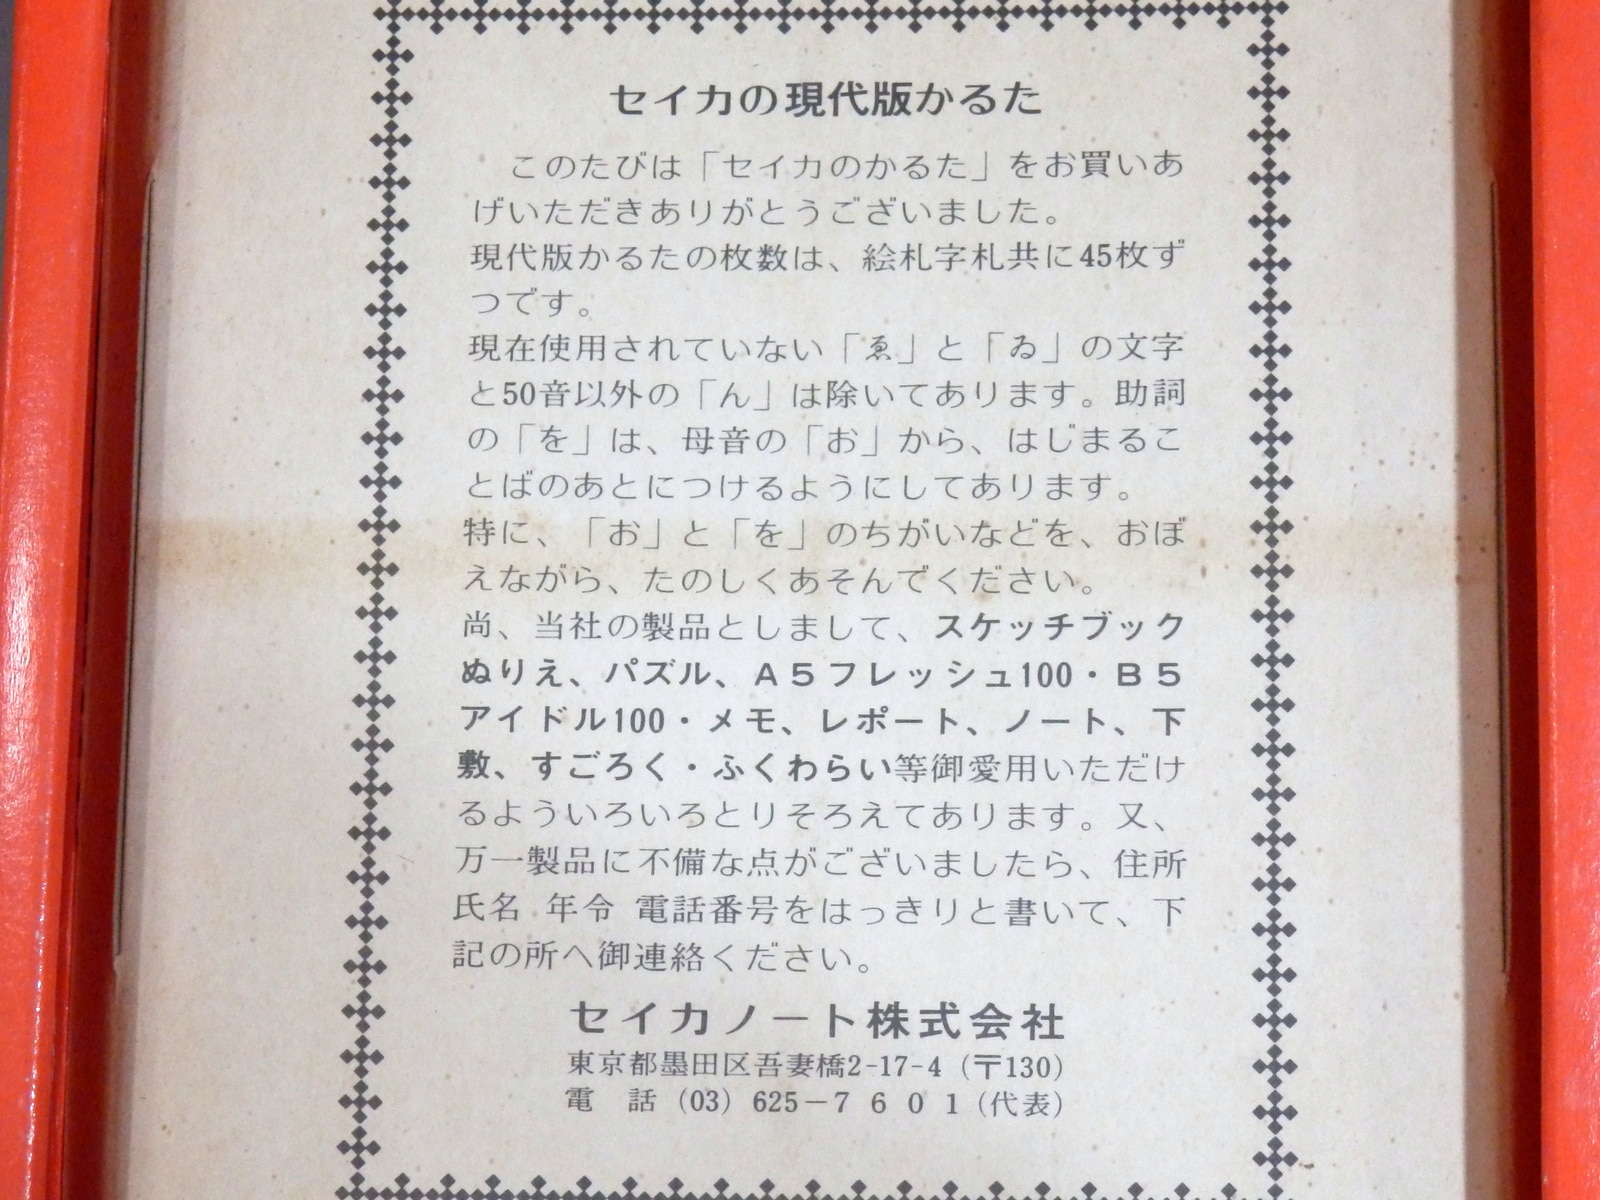 セイカの現代版かるた
このたびは「セイカのかるた」をお買いあ
げいただきありがとうございました。
現代版かるたの枚数は、絵札字札共に45枚ず
つです。
現在使用されていない「ゑ」と「ゐ」の文字
と50音以外の「ん」は除いてあります。助詞
の「を」は、母音の「お」から、はじまるこ
とばのあとにつけるようにしてあります。
特に、「お」と「を」のちがいなどを、おぼ
えながら、たのしくあそんでください。
尚、当社の製品としまして、スケッチブック
ぬりえ、パズル、A5フレッシュ100・B5
アイドル100・メモ、レポート、ノート、下
敷、すごろく・ふくわらい等御愛用いただけ
るよういろいろとりそろえてあります。又、
万一製品に不備な点がございましたら、住所
氏名 年令 電話番号をはっきりと書いて、下
記の所へ御連絡ください。
セイカノート株式会社
東京都墨田区吾妻橋2-17-4（〒130）
電　話（03）625－7601（代表）